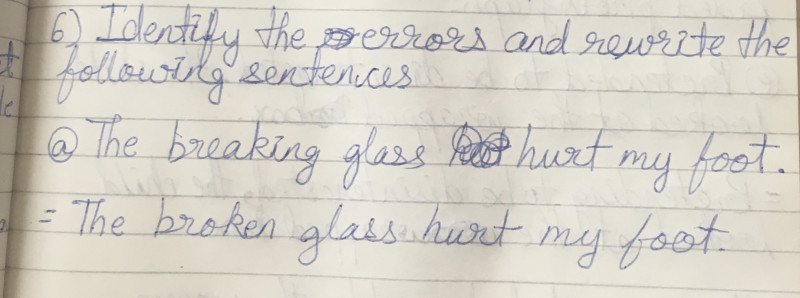 6) Identify the errors and rewrite the
following sentences
@ The breaking glass hurt my foot.
= The broken glass hurt my foot.